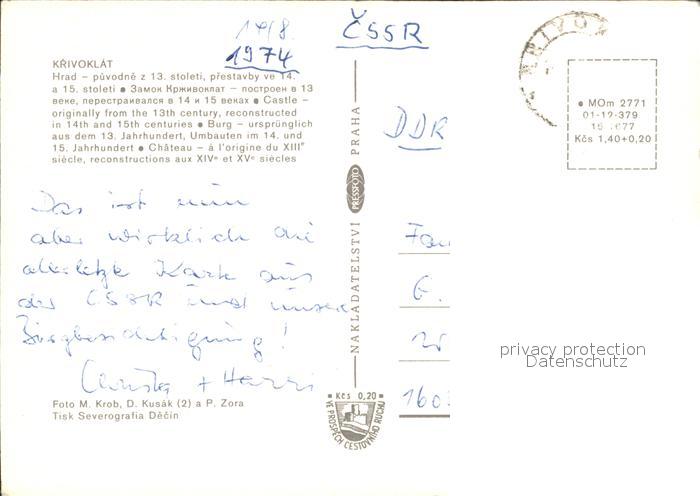 17/8
1974
ČSSR
KŘIVOKLÁT
Hrad – původně z 13. století, přestavby ve 14.
a 15. století ● Замок Крживоклат – построен в 13
веке, перестраивался в 14 и 15 веках ● Castle –
originally from the 13th century, reconstructed
in 14th and 15th centuries ● Burg – ursprünglich
aus dem 13. Jahrhundert, Umbauten im 14. und
15. Jahrhundert ● Château – à l'origine du XIIIe
siècle, reconstructions aux XIVe et XVe siècles
Das ist nun
aber wirklich die
allerletzte Karte aus
der ČSSR und unsere
Burgbesichtigung!
Christa + Harri
Foto M. Krob, D. Kusák (2) a P. Zora
Tisk Severografia Děčín
NAKLADATELSTVÍ PRESSFOTO PRAHA
Kčs 0,20
VE PROSPĚCH CESTOVNÍHO RUCHU
KŘIVOK
● MOm 2771
01-12-379
Kčs 1,40+0,20
DDR
Fam
G.
160
privacy protection
Datenschutz